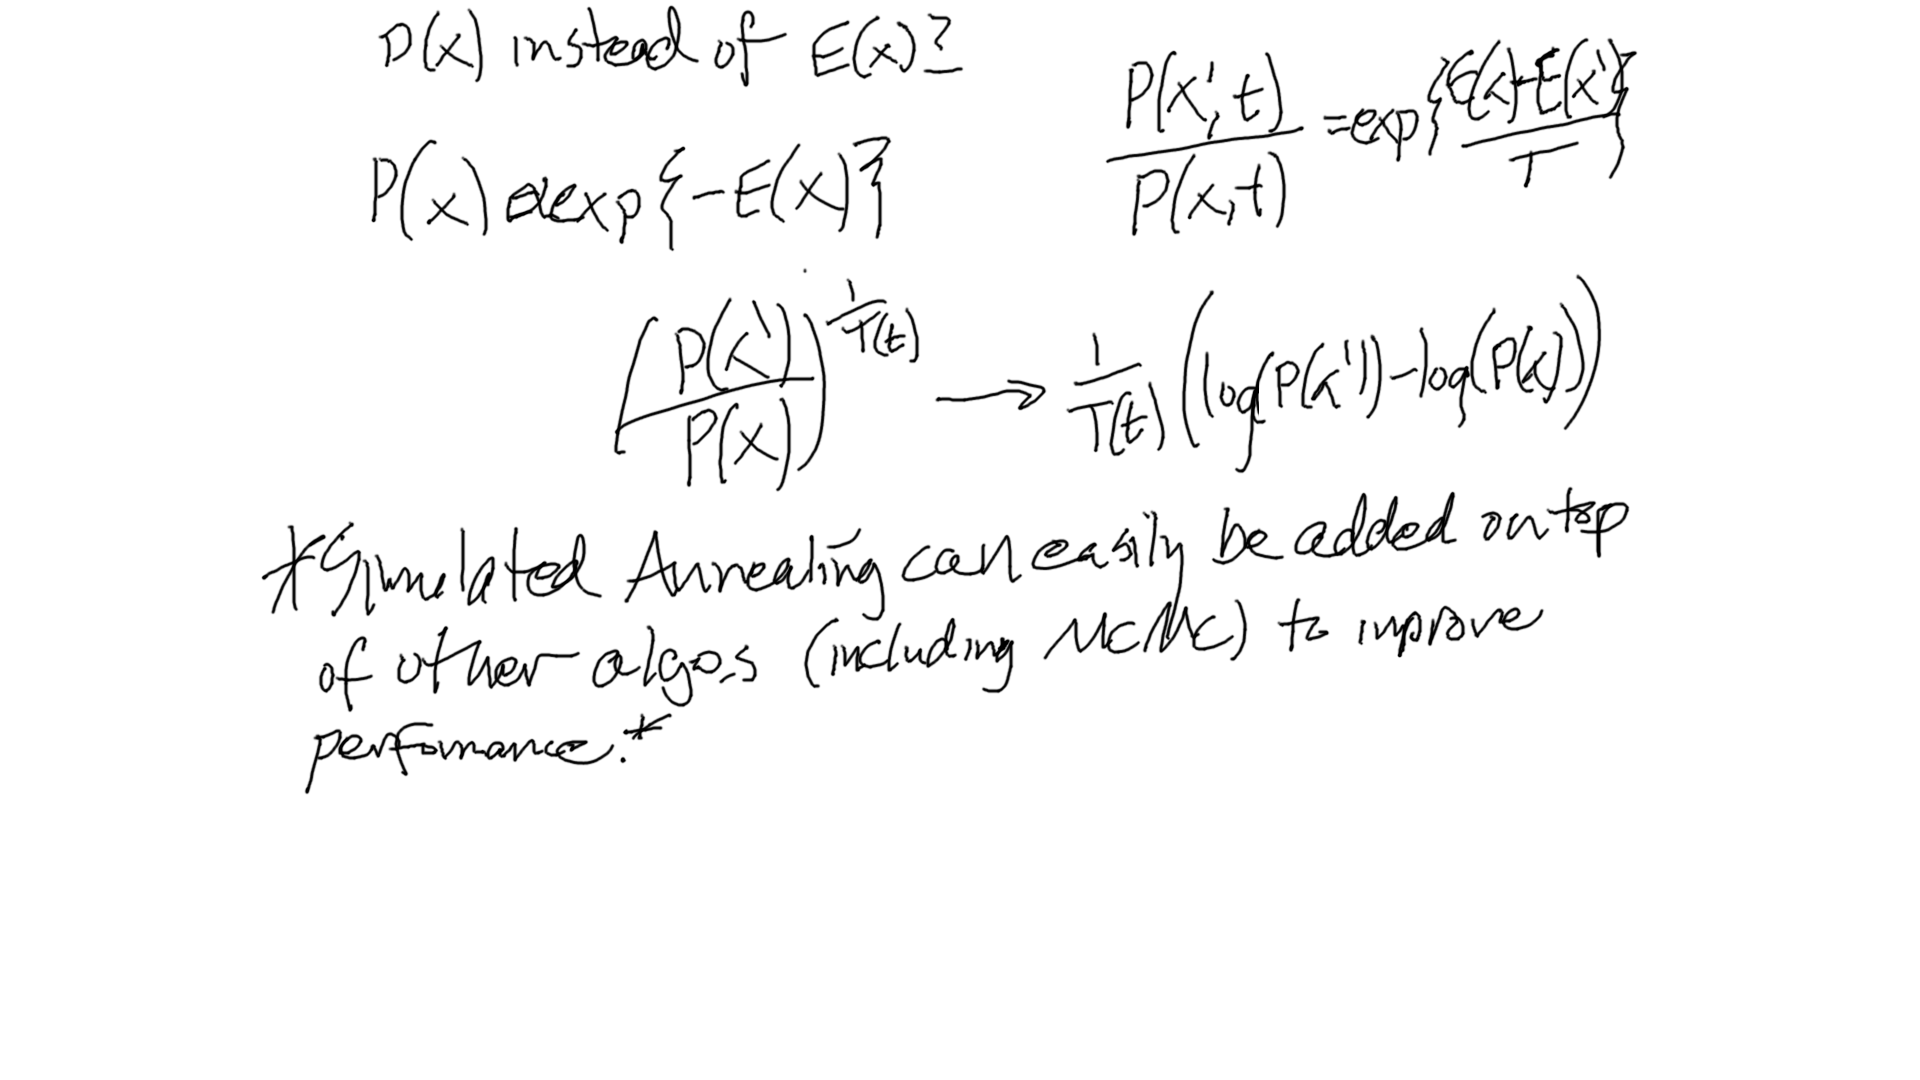 P(x) instead of E(x)?
P(x',t)/P(x,t) = exp{(E(x)-E(x'))/T}
P(x) αexp{-E(x)}
(P(x')/P(x))^(1/T(t)) → 1/T(t) (log(P(x'))-log(P(x)))
*Simulated Annealing can easily be added on top
of other algos (including MCMC) to improve
performance.*